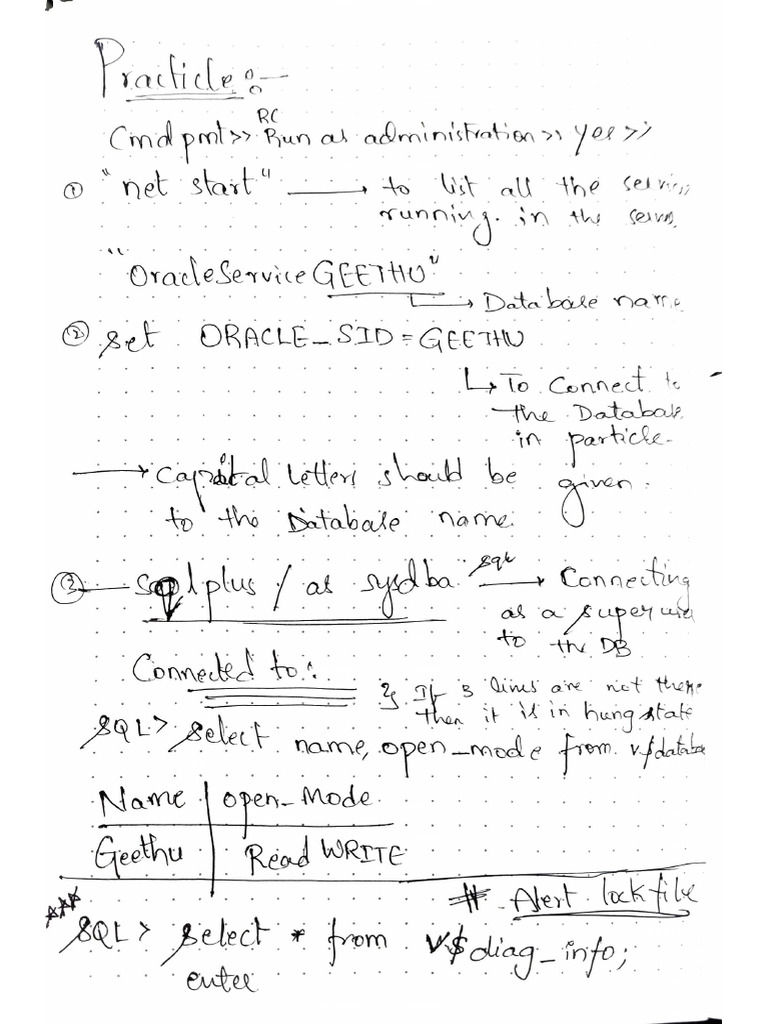 Practicle:-
RC
Cmd pmt>> Run as administration>> yes>>
① "net start" → to list all the servic
running. in the serve
"OracleService GEETHU"
→ Database name
② set ORACLE_SID=GEETHU
↳ To Connect to
the Database
in particle.
→ Capital letters should be given.
to the Database name.
③ sqlplus / as sysdba sql → Connecting
as a super use
to the DB
Connected to:
If 3 lines are not there
then it is in hung state
SQL> select name, open_mode from v$databa
Name | open_Mode
Geethu | Read WRITE
# Alert lock file
*** SQL> select * from v$diag_info;
enter